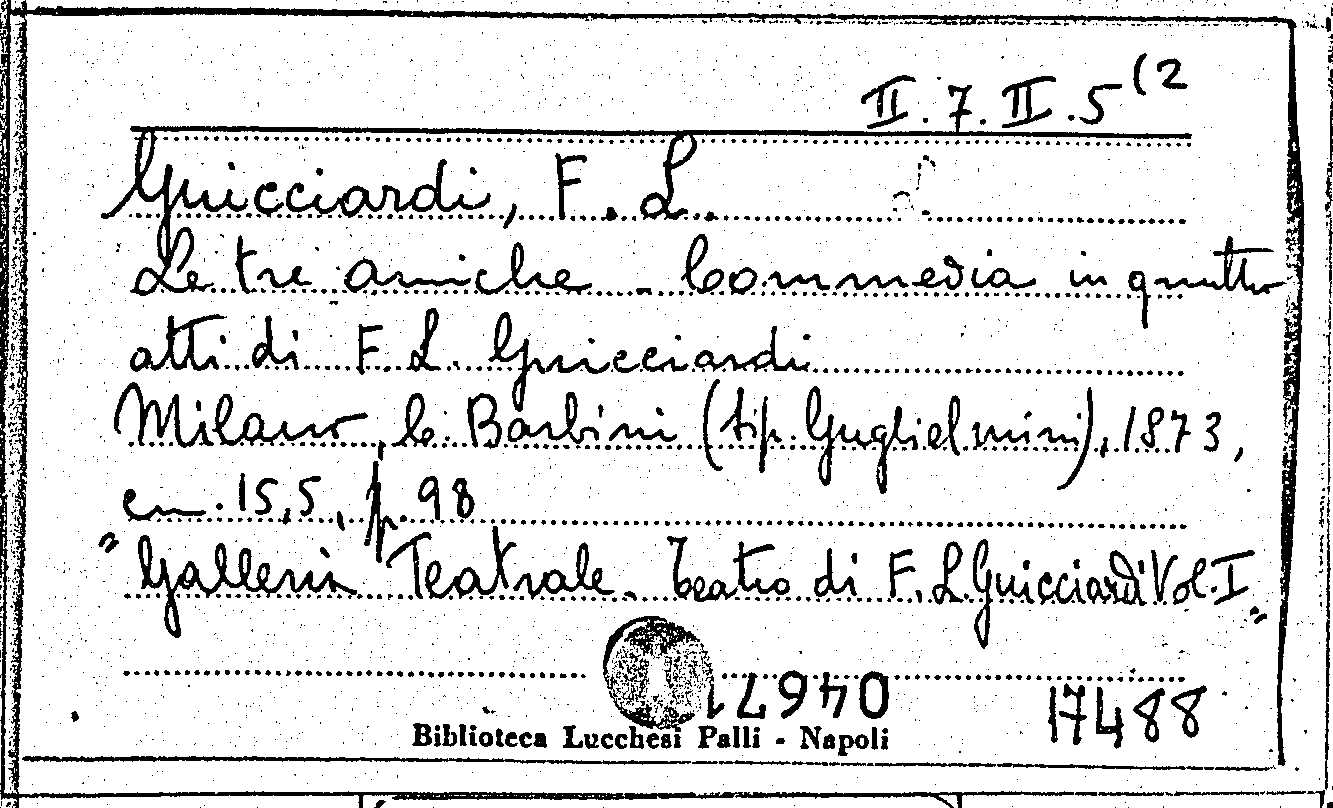 II.7.II.5(2
Guicciardi, F. L.
Le tre amiche - Commedia in quattro
atti di F. L. Guicciardi
Milano, C. Barbini (tip. Guglielmini), 1873,
cm. 15,5, p. 98
"Galleria Teatrale. Teatro di F. L. Guicciardi Vol. I"
04671
17488
Biblioteca Lucchesi Palli - Napoli